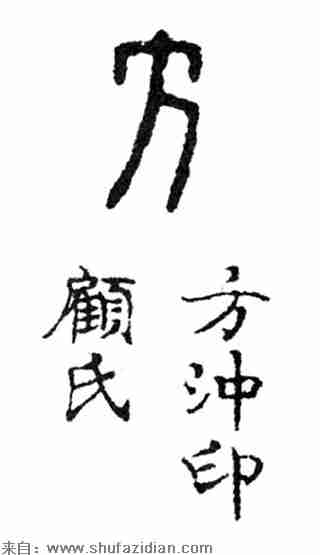 方
方沖印
顧氏
来自：www.shufazidian.com